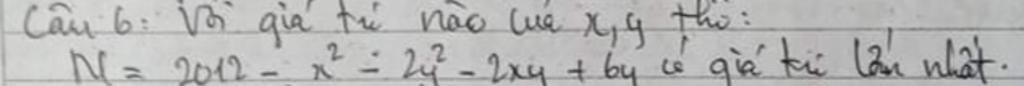 Câu 6: Với giá trị nào của x, y thì:
M = 2012 - x² - 2y² - 2xy + 6y có giá trị lớn nhất.